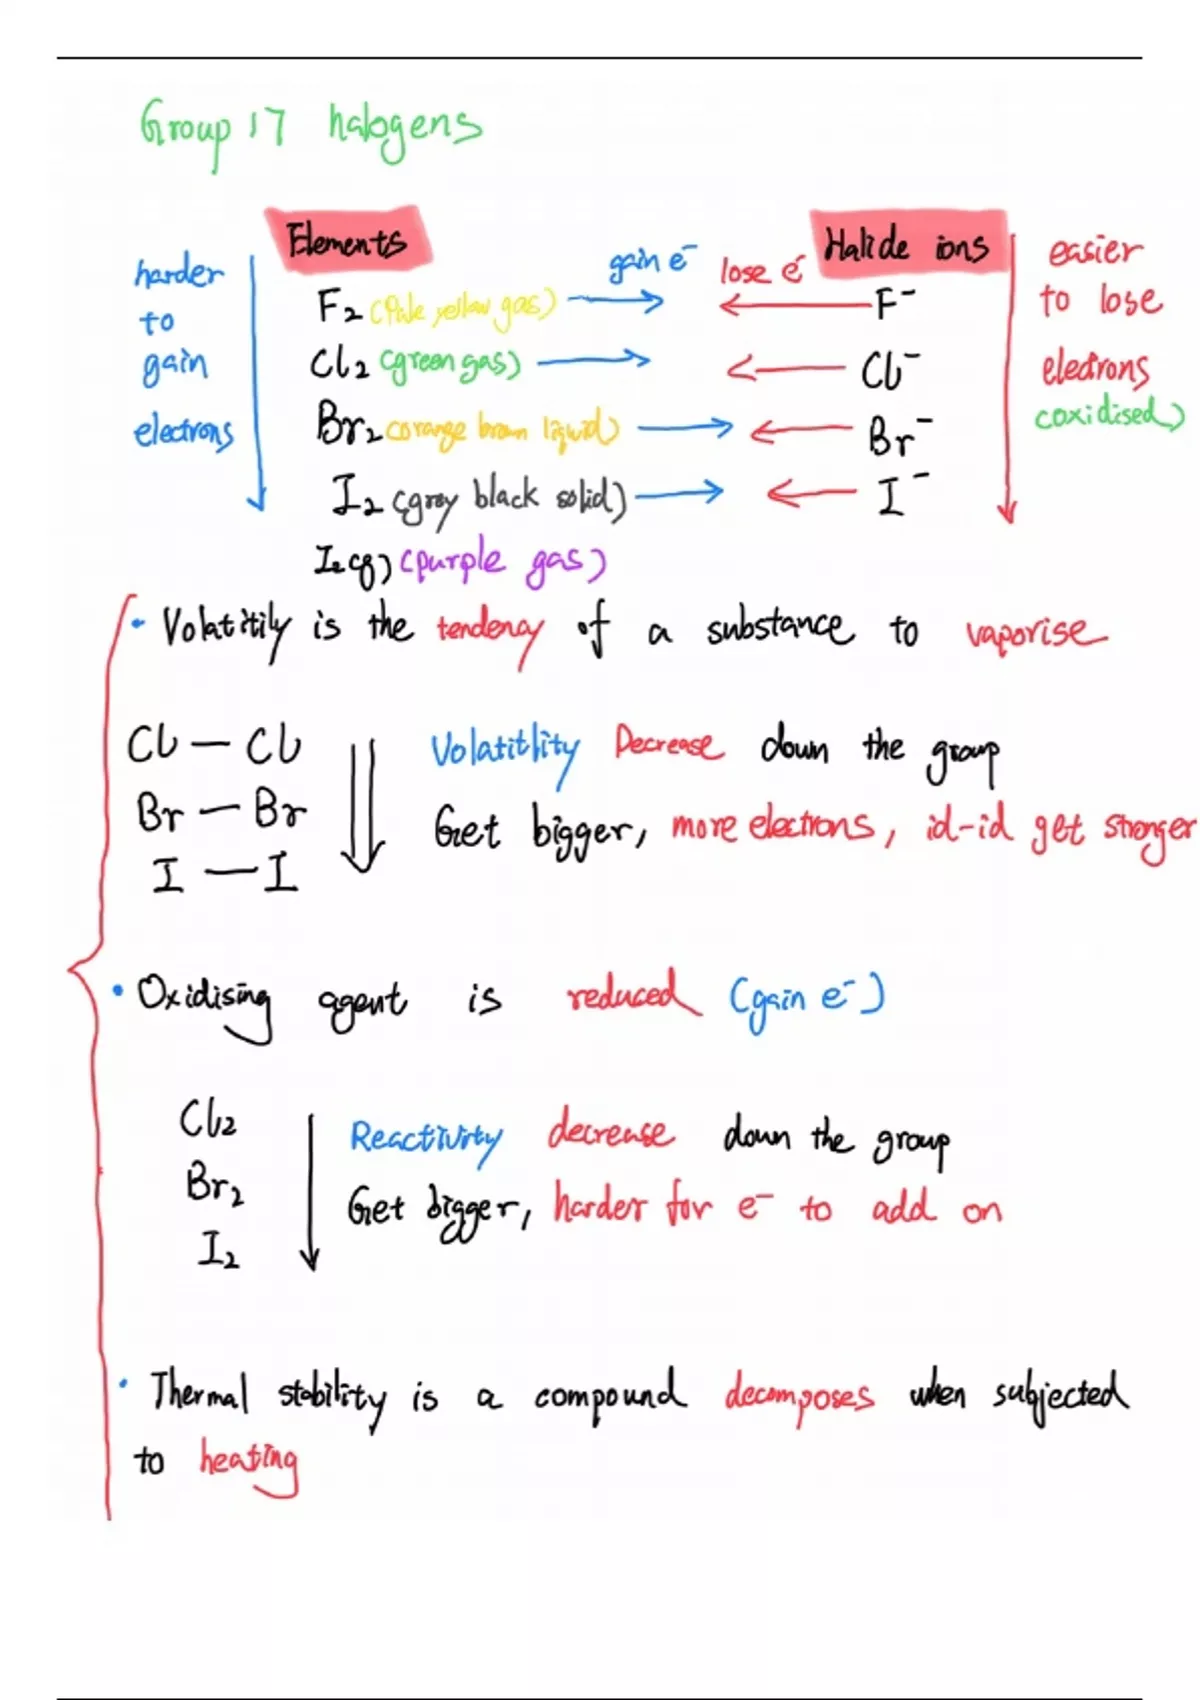 Group 17 halogens
Elements
Halide ions
harder
to
gain
electrons
gain e⁻
lose e⁻
easier
to lose
electrons
(oxidised)
F₂ (Pale yellow gas)
F⁻
Cl₂ (green gas)
Cl⁻
Br₂ (orange brown liquid)
Br⁻
I₂ (grey black solid)
I⁻
I₂(g) (purple gas)
• Volatitily is the tendency of a substance to vaporise
Cl — Cl
Br — Br
I — I
Volatitlity Decrease down the group
Get bigger, more electrons, id-id get stronger
• Oxidising agent is reduced (gain e⁻)
Cl₂
Br₂
I₂
Reactivity decrease down the group
Get bigger, harder for e⁻ to add on
• Thermal stability is a compound decomposes when subjected
to heating